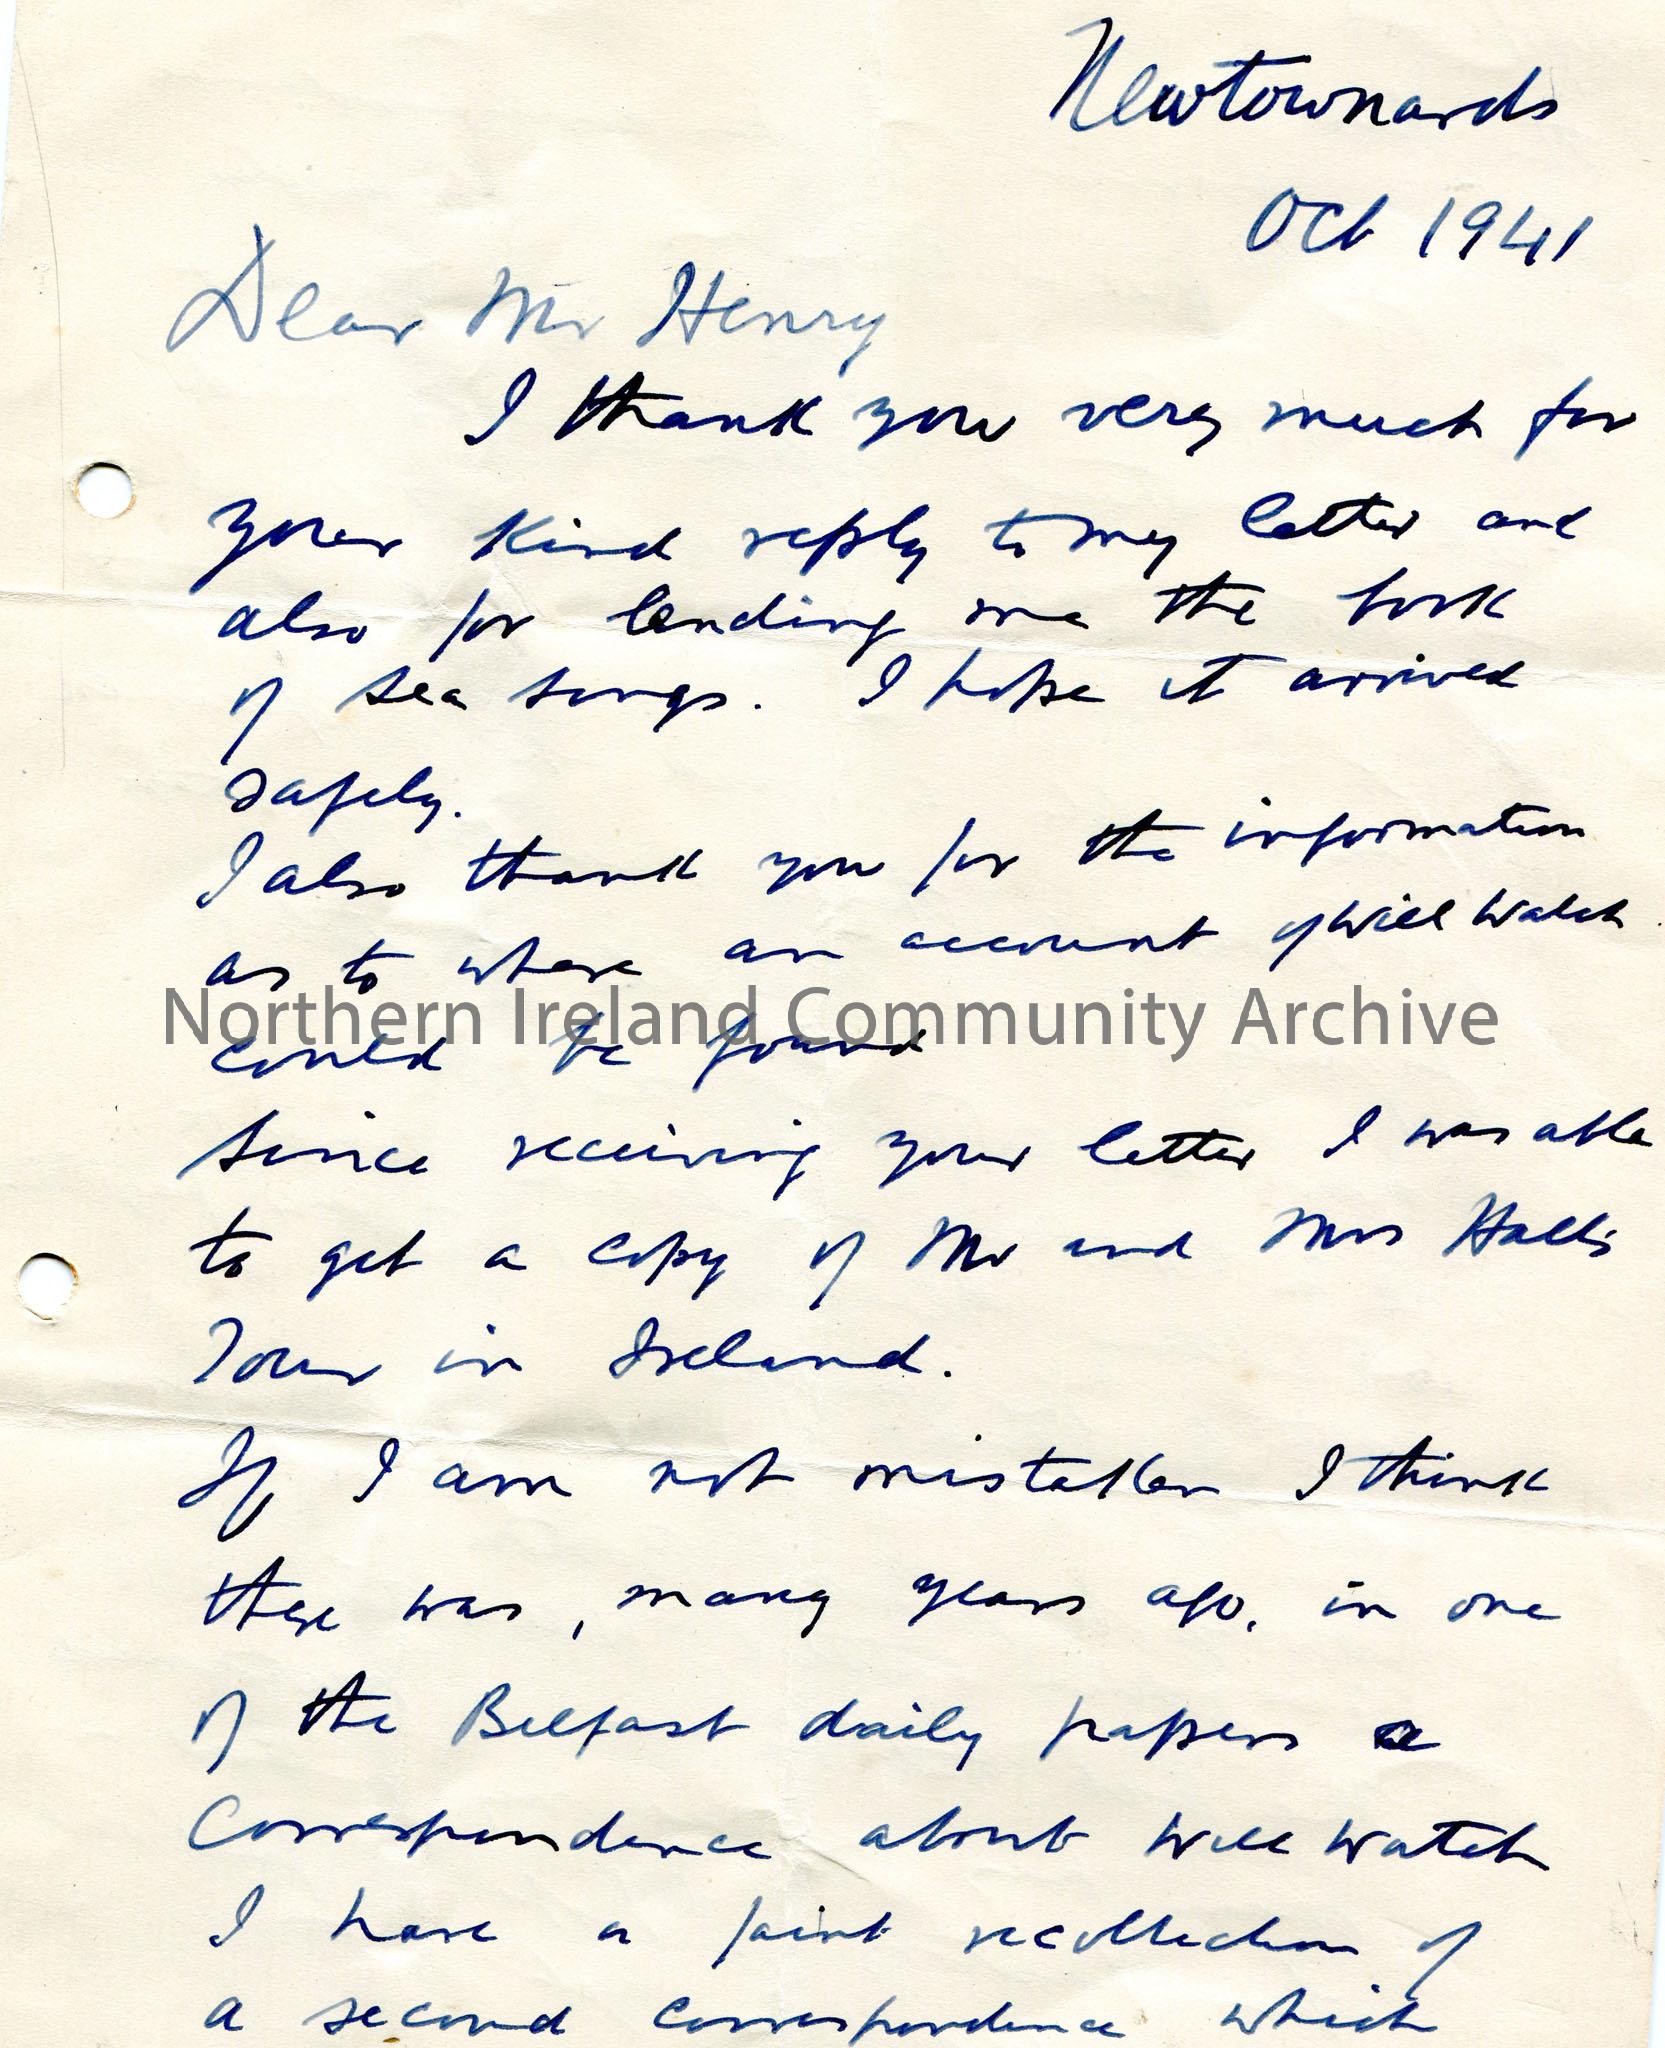 Newtownards
Oct 1941
Dear Mr Henry
I thank you very much for
your kind reply to my letter and
also for lending me the book
of sea songs. I hope it arrived
safely.
I also thank you for the information
as to where an account of Will Watch
Northern Ireland Community Archive
could be found
Since receiving your letter I was able
to get a copy of Mr and Mrs Halls
Tour in Ireland.
If I am not mistaken I think
there was, many years ago, in one
of the Belfast daily papers a
Correspondence about Will Watch
I have a faint recollection of
a second correspondence which